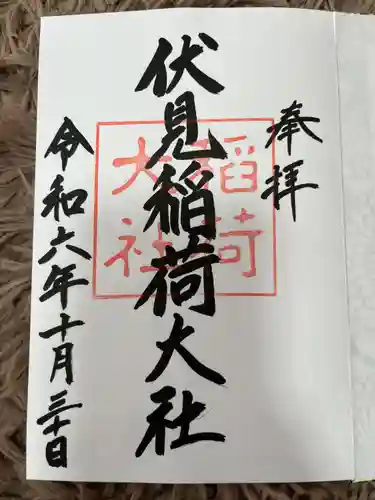 奉拝
伏見稲荷大社
稲荷
大社
令和六年十月三十日